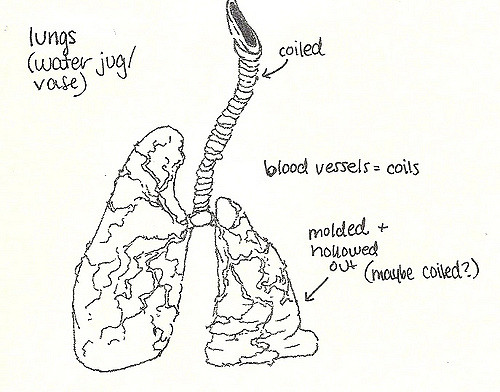 lungs
(water jug/
vase)
coiled
blood vessels = coils
molded +
hollowed
out (maybe coiled?)